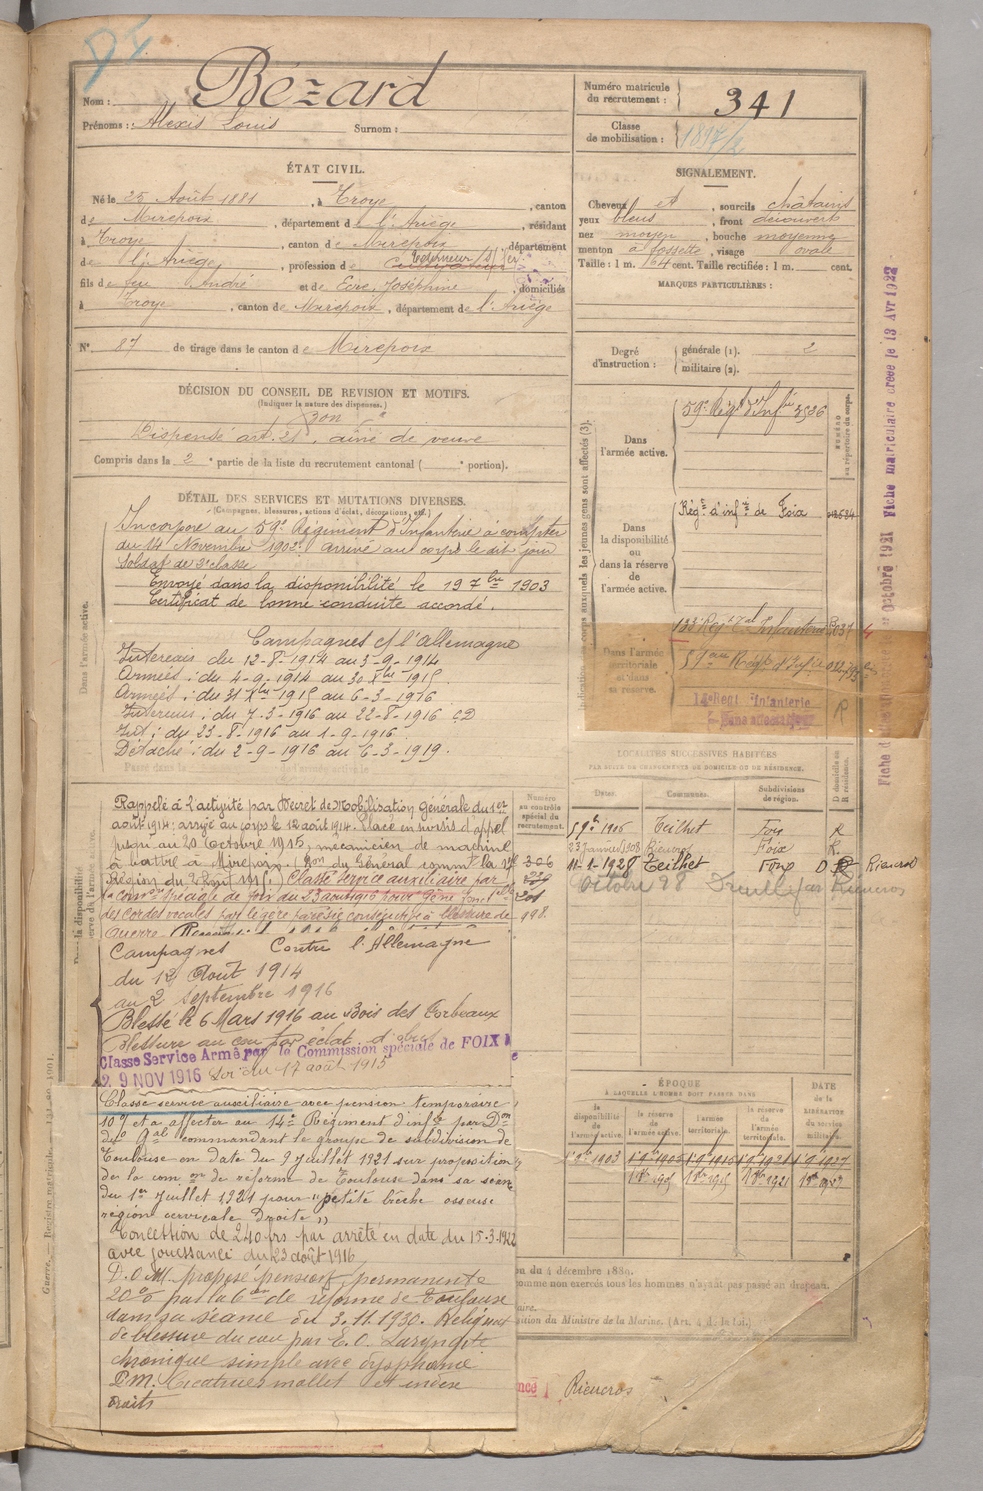 Nom : Bézard
Prénoms : Alexis Louis Surnom :
Numéro matricule
du recrutement : 341
Classe
de mobilisation : 1897/2
ÉTAT CIVIL.
Né le 25 Août 1881, à Troye, canton
de Mirepoix, département de l'Ariège, résidant
à Troye, canton de Mirepoix département
de l'Ariège, profession de Cultivateur
fils de feu André et de Ecre Joséphine, domiciliés
à Troye, canton de Mirepoix, département de l'Ariège
N° 87 de tirage dans le canton de Mirepoix
SIGNALEMENT.
Cheveux et sourcils châtains
yeux bleus, front découvert
nez moyen, bouche moyenne
menton à fossette, visage ovale
Taille : 1 m. 64 cent. Taille rectifiée : 1 m. cent.
MARQUES PARTICULIÈRES :
Degré
d'instruction :
générale (1). 2
militaire (2).
DÉCISION DU CONSEIL DE REVISION ET MOTIFS.
(Indiquer la nature des dispenses.)
Bon
Dispensé art. 21, aîné de veuve
Compris dans la 2e partie de la liste du recrutement cantonal ( e portion).
DÉTAIL DES SERVICES ET MUTATIONS DIVERSES.
(Campagnes, blessures, actions d'éclat, décorations, etc.)
Dans l'armée active.
Incorporé au 59e Régiment d'Infanterie à compter
du 14 Novembre 1902. Arrivé au corps le dit jour
Soldat de 2e classe
Envoyé dans la disponibilité le 19 7bre 1903
Certificat de bonne conduite accordé.
Campagnes c/ l'Allemagne
Intérieur du 12-8-1914 au 3-9-1914
Armées : du 4-9-1914 au 30 Xbre 1915
Armées : du 31 Xbre 1915 au 6-3-1916
Intérieur : du 7-3-1916 au 22-8-1916 CD
Int : du 23-8-1916 au 1-9-1916
Détaché : du 2-9-1916 au 6-3-1919.
corps auxquels les jeunes gens sont affectés (3).
NUMÉRO
au répertoire du corps.
Dans
l'armée active.
59e Régt d'Infie 3536
Dans
la disponibilité
ou
dans la réserve
de
l'armée active.
Régt d'infie de Foix
Dans l'armée
territoriale
et dans
sa réserve.
133e Régt Tal Infanterie
14e Régt Infanterie
Sans affectation
R
Fiche matriculaire créée le 13 Avr 1922
Octobre 1921
LOCALITÉS SUCCESSIVES HABITÉES
PAR SUITE DE CHANGEMENTS DE DOMICILE OU DE RÉSIDENCE.
Dates. Communes. Subdivisions
de région.
D domicile ou
R résidence.
5 9bre 1906 Teilhet Foix R
23 janvier 1908 Rieucros Foix R.
11-1-1928 Teilhet Foix D R Rieucros
Octobre 28 Rieucros
Numéro
au contrôle
spécial du
recrutement.
306
201
198.
Rappelé à l'activité par Décret de Mobilisation générale du 1er
août 1914 : arrivé au corps le 12 août 1914. Placé en sursis d'appel
jusqu'au 20 Octobre 1915, mécanicien de machine
à battre à Mirepoix. (Don du Général commt la 17e
Région du 2 Août 1915.) Classé service auxiliaire par
la comon spéciale de Foix du 23 août 1916 pour gêne fonctelle
des cordes vocales par légère parésie consécutive à blessure de
Guerre
Campagnes Contre l'Allemagne
du 12 Août 1914
au 2 septembre 1916
Blessé le 6 Mars 1916 au Bois des Corbeaux
Blessure au cou par éclat d'obus
Classé Service Armé par la Commission spéciale de FOIX
29 NOV 1916 Loi du 17 août 1915
Classé service auxiliaire avec pension temporaire
10% et a affecter au 14e Régiment d'infie par Don
du Gal commandant le groupe de subdivision de
Toulouse en date du 9 Juillet 1921 sur proposition
de la com.on de réforme de Toulouse dans sa séance
du 1er Juillet 1921 pour "petite brèche osseuse
région cervicale Droite"
Concession de 240 frs par arrêté en date du 15-3-1922
avec jouissance du 23 août 1916
D.O.M. proposé pension permanente
20% par la 6e de réforme de Toulouse
dans sa séance du 3.11.1930. Reliquat
de blessure du cou par E.O. Laryngite
chronique simple avec dysphonie
P.M. Cicatrices
droits
ÉPOQUE
À LAQUELLE L'HOMME DOIT PASSER DANS
la
disponibilité
de
l'armée active.
la réserve
de
l'armée active.
l'armée
territoriale.
la réserve
de
l'armée
territoriale.
DATE
de la
LIBÉRATION
du service
militaire.
1er 9bre 1903
du 4 décembre 1889.
comme non exercés tous les hommes n'ayant pas passé au drapeau.
sition du Ministre de la Marine. (Art. 4 de la loi.)
Rieucros
Guerre. — Registre matricule.